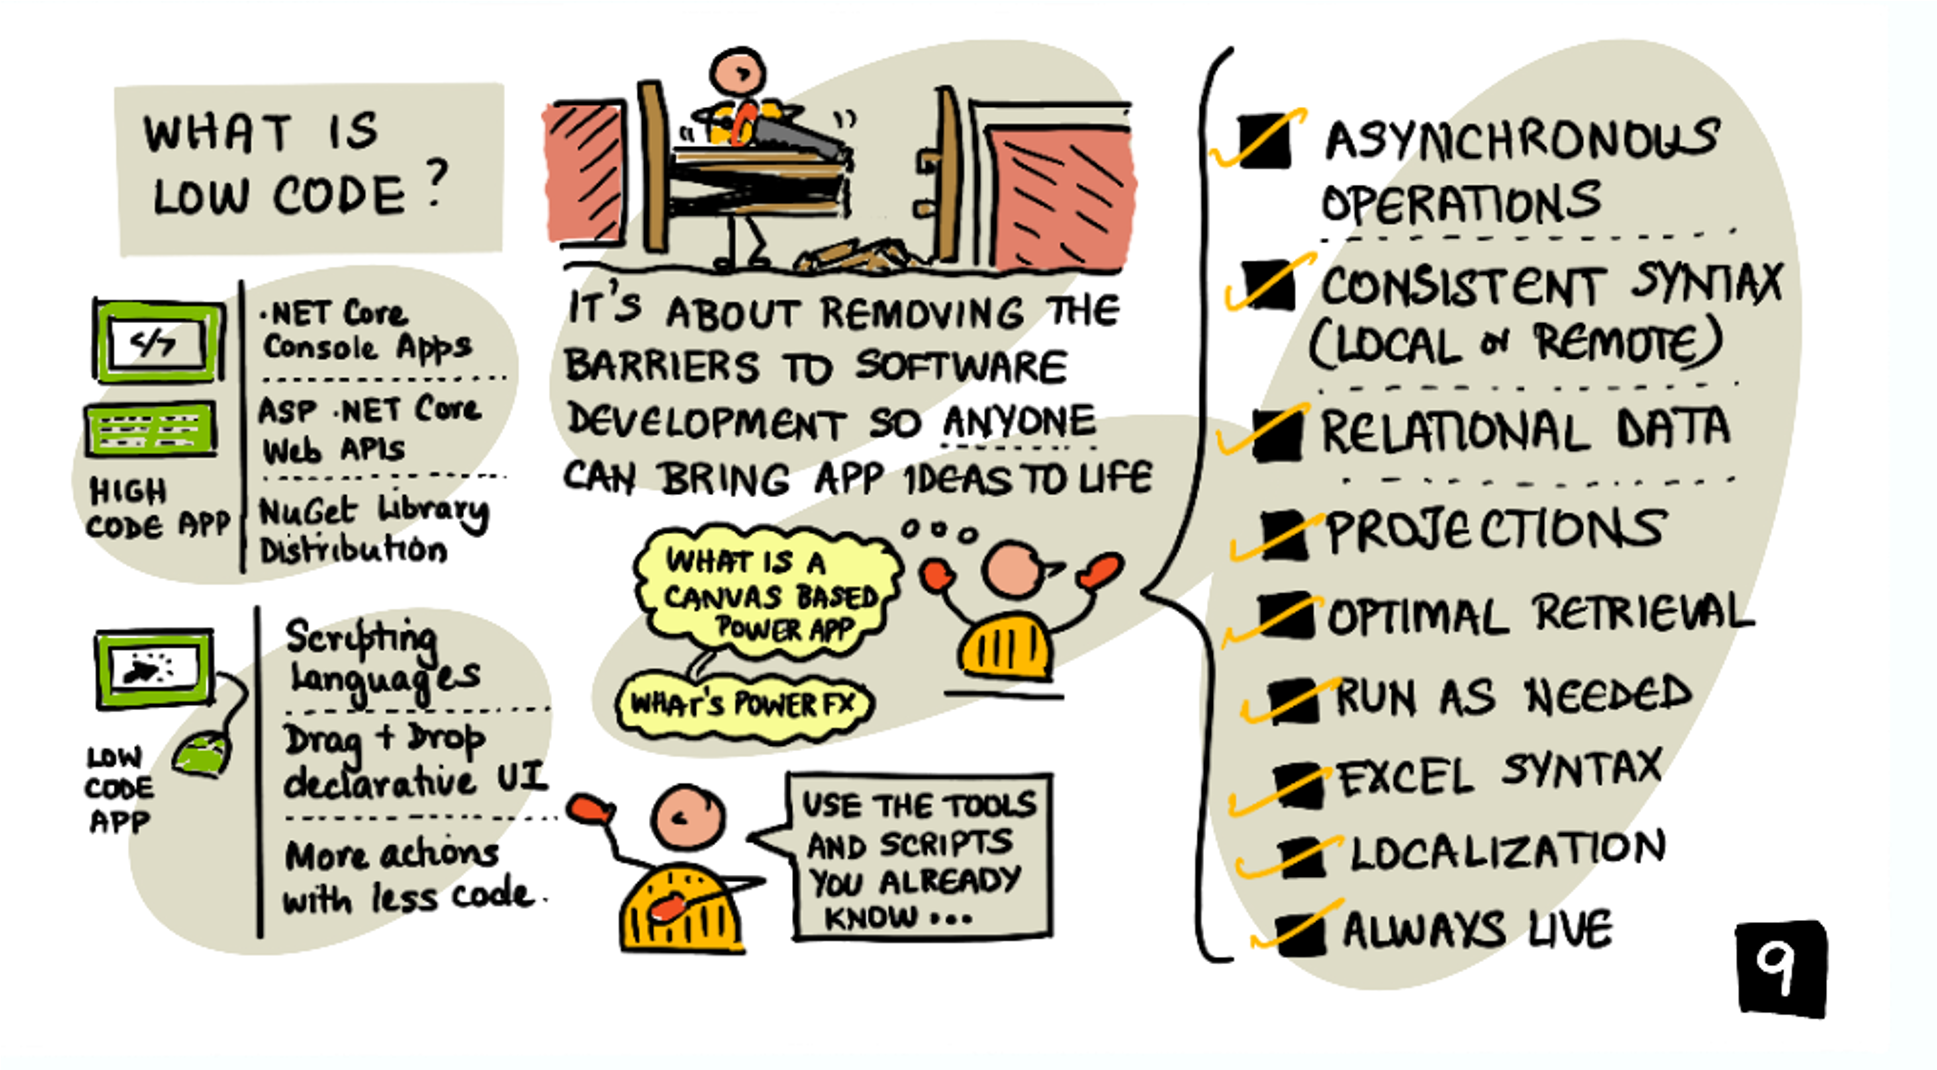 WHAT IS
LOW CODE?
</>
HIGH
CODE APP
.NET Core
Console Apps
ASP .NET Core
Web APIs
NuGet Library
Distribution
LOW
CODE
APP
Scripting
Languages
Drag + Drop
declarative UI
More actions
with less code.
IT'S ABOUT REMOVING THE
BARRIERS TO SOFTWARE
DEVELOPMENT SO ANYONE
CAN BRING APP IDEAS TO LIFE
WHAT IS A
CANVAS BASED
POWER APP
WHAT'S POWER FX
USE THE TOOLS
AND SCRIPTS
YOU ALREADY
KNOW...
ASYNCHRONOUS
OPERATIONS
CONSISTENT SYNTAX
(LOCAL or REMOTE)
RELATIONAL DATA
PROJECTIONS
OPTIMAL RETRIEVAL
RUN AS NEEDED
EXCEL SYNTAX
LOCALIZATION
ALWAYS LIVE
9